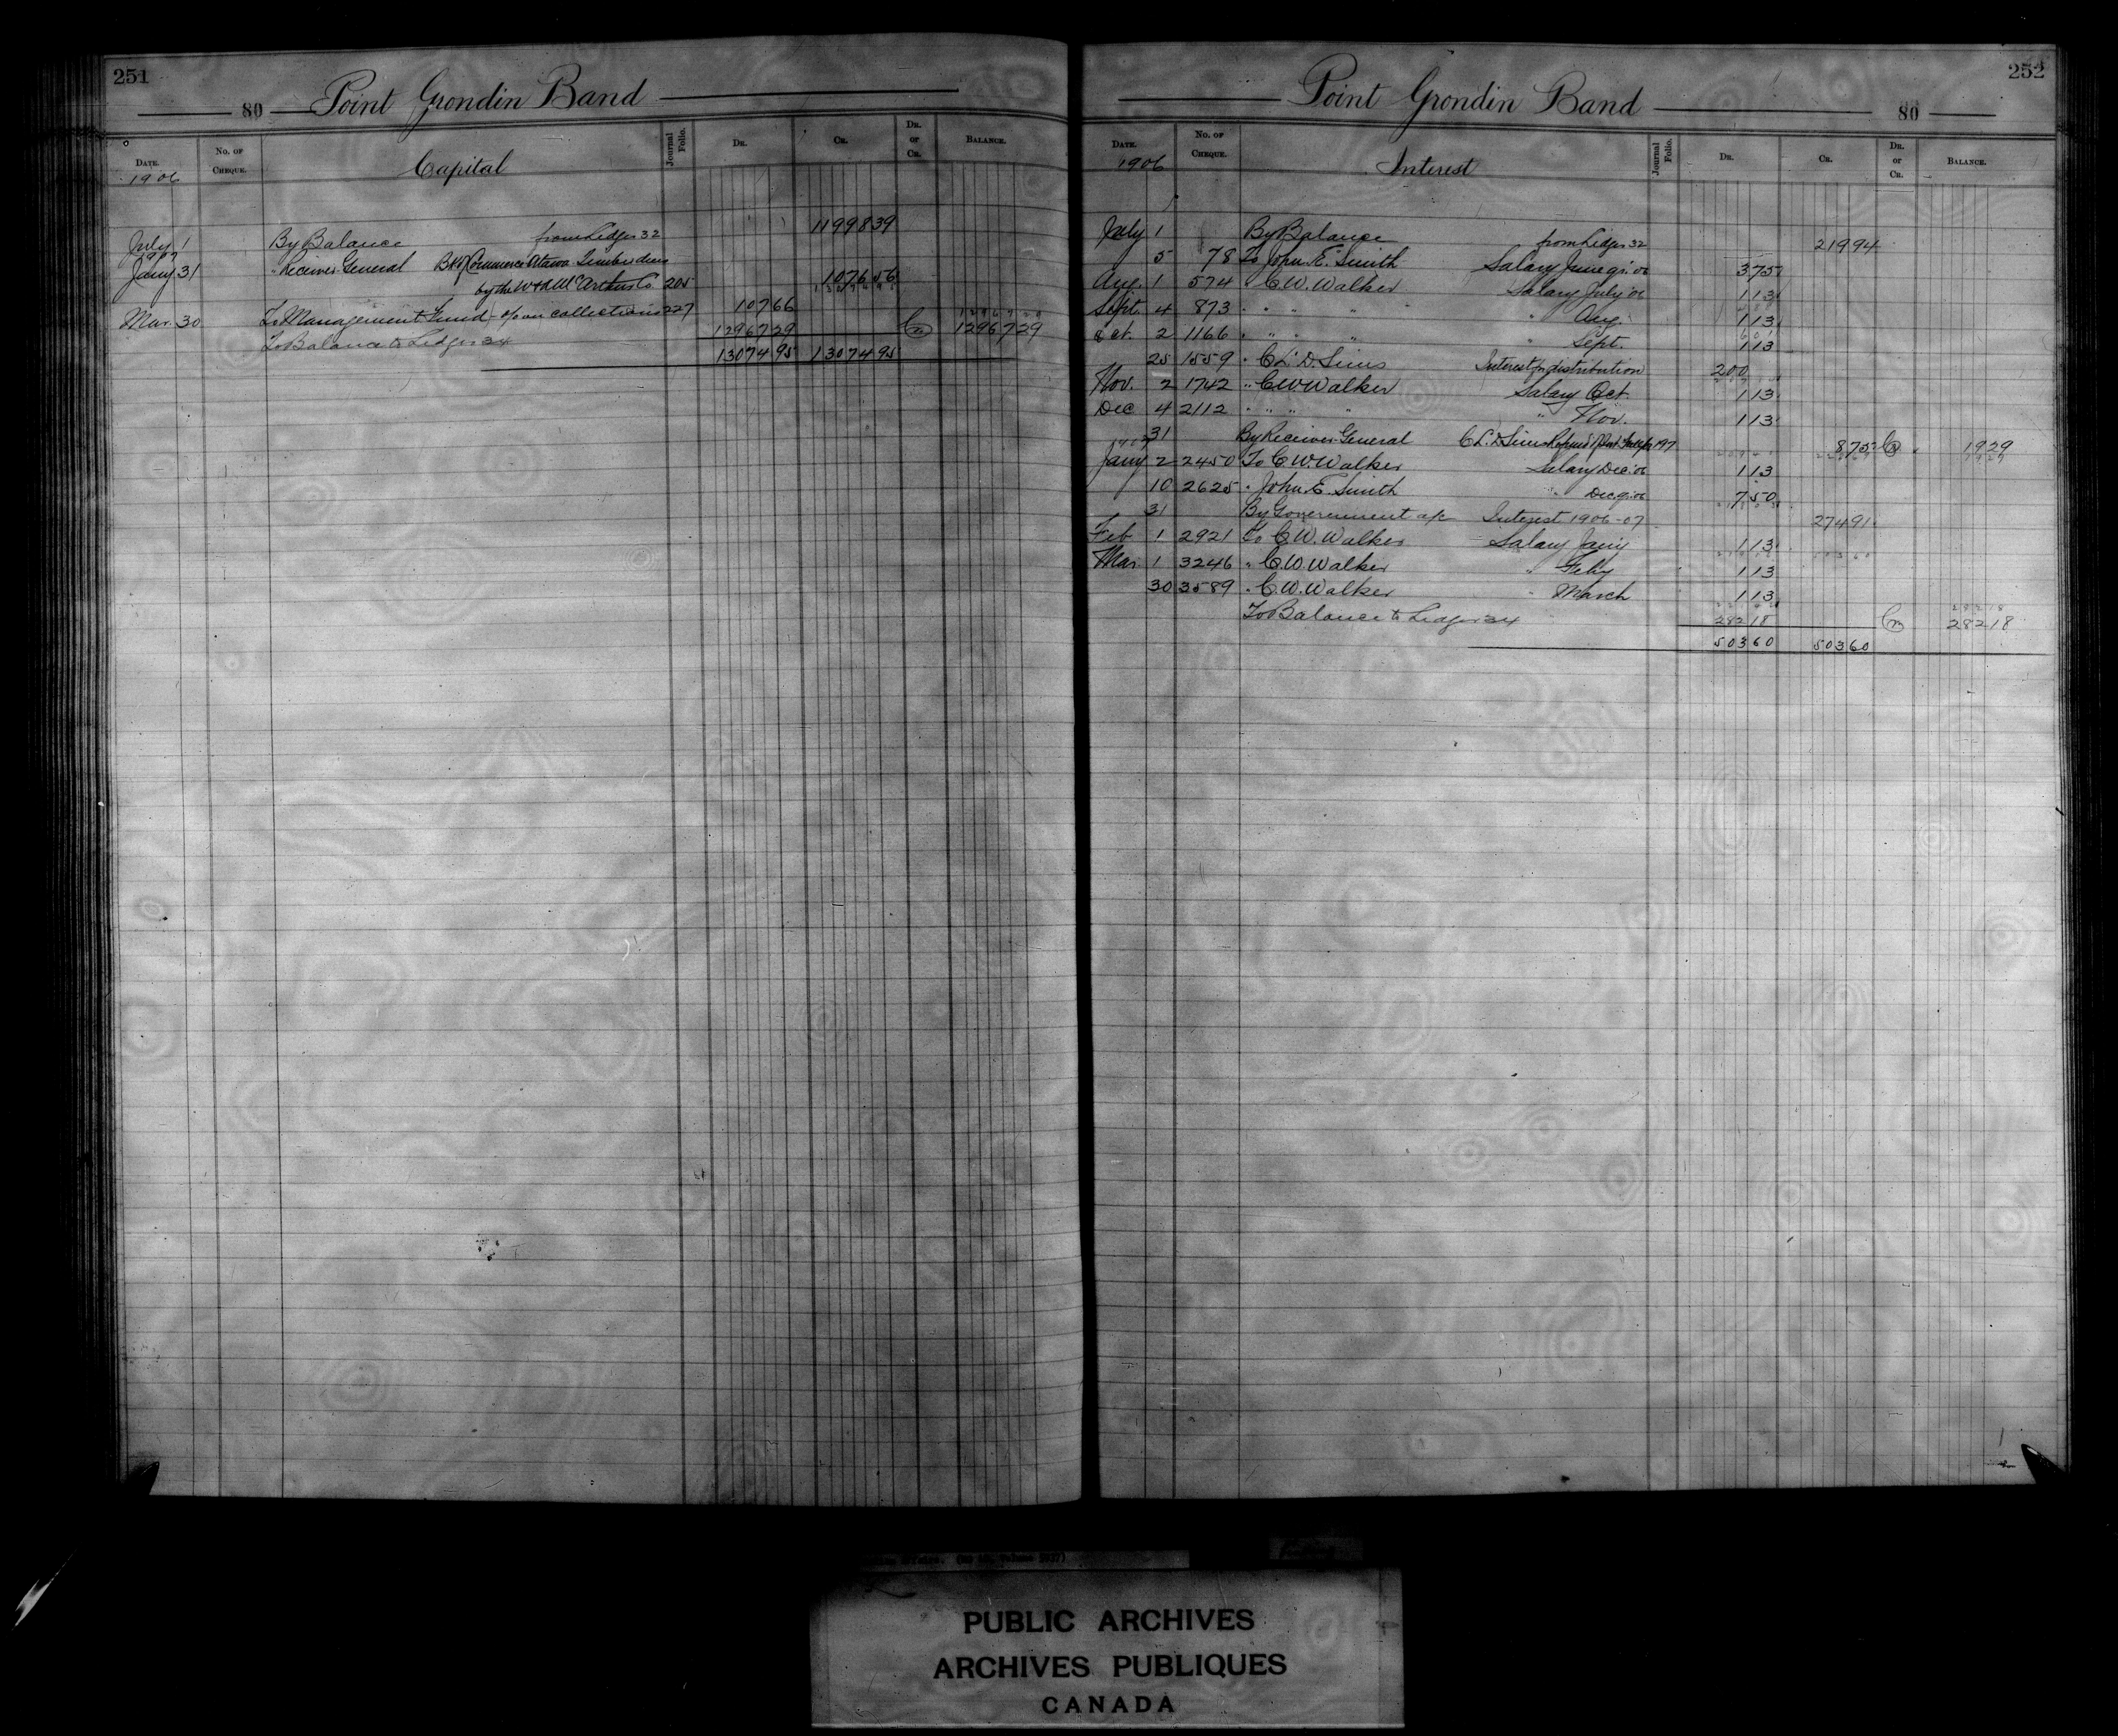 251
80 Point Grondin Band
DATE. No. OF CHEQUE. Capital Journal Folio. DR. CR. DR. or CR. BALANCE.
1906
July 1 By Balance from Ledger 32 11998 39
1907
Jany 31 " Receiver General Bk of Commerce Ottawa Timber dues
by the W & A McArthur Co 205 1076 56
Mar. 30 To Management Fund - % on collections 227 107 66
To Balance to Ledger 34 12967 29 Cr 12967 29
13074 95 13074 95
252
Point Grondin Band 80
DATE. No. OF CHEQUE. Interest Journal Folio. DR. CR. DR. or CR. BALANCE.
1906
July 1 By Balance from Ledger 32 219 94
5 78 To John E. Smith Salary June qr. 06 3 75
Aug. 1 574 " C. W. Walker Salary July '06 1 13
Sept. 4 873 " " " " " Aug. 1 13
Oct. 2 1166 " " " " " Sept. 1 13
25 1559 " C. L. D. Sims Interest for distribution 200
Nov. 2 1742 " C W Walker Salary Oct. 1 13
Dec 4 2112 " " " " " Nov. 1 13
31 By Receiver General C. L. D. Sims Refund 197 8 75 Cr 19 29
1907
Jany 2 2450 To C. W. Walker Salary Dec. 06 1 13
10 2625 " John E. Smith " Dec qr. 06 7 50
31 By Government a/c Interest 1906-07 274 91
Feb 1 2921 To C. W. Walker Salary Jany 1 13
Mar 1 3246 " C. W. Walker " Feby 1 13
30 3589 " C. W. Walker " March 1 13
To Balance to Ledger 34 282 18 Cr 282 18
503 60 503 60
PUBLIC ARCHIVES
ARCHIVES PUBLIQUES
CANADA